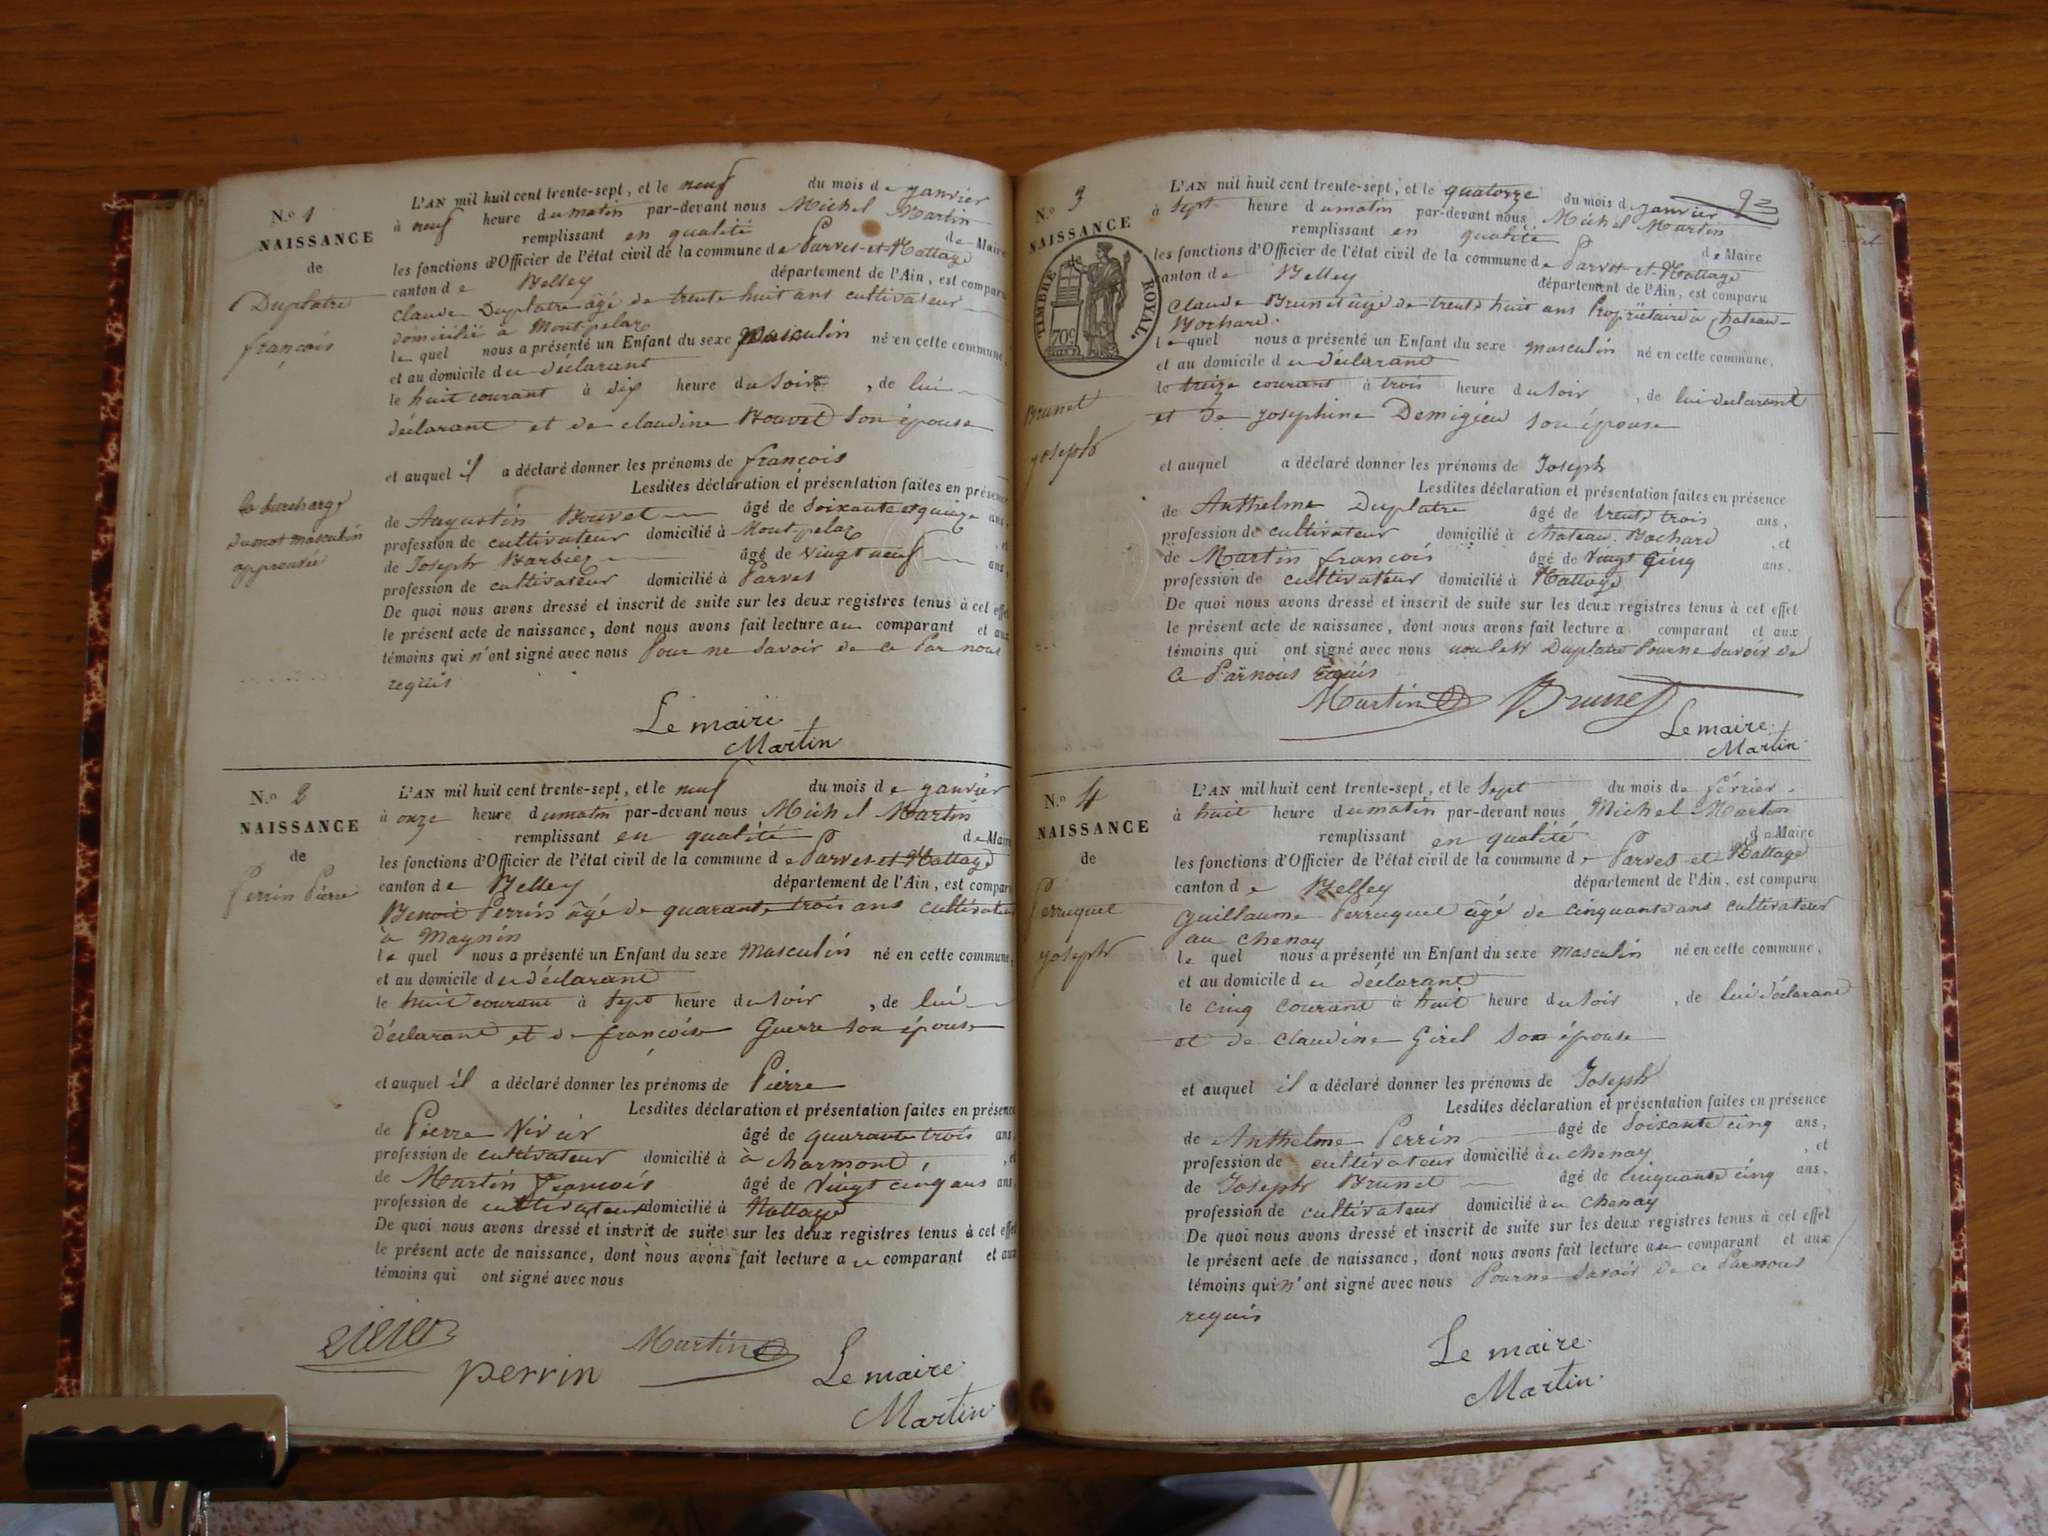 N.º 1
NAISSANCE
de
Duplatre
françois
la surcharge
du mot masculin
approuvée
L'AN mil huit cent trente-sept, et le neuf du mois de janvier
à neuf heure du matin par-devant nous Michel Martin
remplissant en qualité de Maire
les fonctions d'Officier de l'état civil de la commune de Parves-et-Nattage
canton de Belley département de l'Ain, est comparu
Claude Duplatre âgé de trente huit ans cultivateur
domicilié à Montpelaz
lequel nous a présenté un Enfant du sexe Masculin né en cette commune,
et au domicile du déclarant
le huit courant à dix heure du soir, de lui
déclarant et de claudine Bouvet son épouse
et auquel il a déclaré donner les prénoms de françois
Lesdites déclaration et présentation faites en présence
de Augustin Bouvet âgé de Soixante et quinze ans,
profession de cultivateur domicilié à Montpelaz, et
de Joseph Barbier âgé de vingt neuf ans,
profession de cultivateur domicilié à Parves
De quoi nous avons dressé et inscrit de suite sur les deux registres tenus à cet effet
le présent acte de naissance, dont nous avons fait lecture au comparant et aux
témoins qui n'ont signé avec nous Pour ne savoir de ce Par nous
requis
Le maire
Martin
N.º 2
NAISSANCE
de
Perrin Pierre
L'AN mil huit cent trente-sept, et le neuf du mois de janvier
à onze heure du matin par-devant nous Michel Martin
remplissant en qualité de Maire
les fonctions d'Officier de l'état civil de la commune de Parves et Nattage
canton de Belley département de l'Ain, est comparu
Benoit Perrin âgé de quarante trois ans cultivateur
à Maynin
lequel nous a présenté un Enfant du sexe Masculin né en cette commune,
et au domicile du déclarant
le huit courant à Sept heure du soir, de lui
déclarant et de françoise Guerre son épouse
et auquel il a déclaré donner les prénoms de Pierre
Lesdites déclaration et présentation faites en présence
de Pierre âgé de quarante trois ans,
profession de cultivateur domicilié à à charmont, et
de Martin françois âgé de vingt cinq ans ans,
profession de cultivateur domicilié à Nattage
De quoi nous avons dressé et inscrit de suite sur les deux registres tenus à cet effet
le présent acte de naissance, dont nous avons fait lecture au comparant et aux
témoins qui ont signé avec nous
perrin Martin Le maire
Martin
2
N.º 3
NAISSANCE
de
TIMBRE ROYAL.
70c
Brunet
joseph
L'AN mil huit cent trente-sept, et le quatorze du mois de janvier
à sept heure du matin par-devant nous Michel Martin
remplissant en qualité de Maire
les fonctions d'Officier de l'état civil de la commune de Parves et Nattage
canton de Belley département de l'Ain, est comparu
Claude Brunet âgé de trente huit ans Propriétaire à Chateau-
Bochard.
lequel nous a présenté un Enfant du sexe masculin né en cette commune,
et au domicile du déclarant
le treize courant à trois heure du soir, de lui déclarant
et de josephine Demigieu son épouse
et auquel a déclaré donner les prénoms de Joseph
Lesdites déclaration et présentation faites en présence
de Anthelme Duplatre âgé de trente trois ans,
profession de cultivateur domicilié à chateau Bochard, et
de Martin françois âgé de vingt Cinq ans,
profession de cultivateur domicilié à Nattage
De quoi nous avons dressé et inscrit de suite sur les deux registres tenus à cet effet
le présent acte de naissance, dont nous avons fait lecture a comparant et aux
témoins qui ont signé avec nous Duplatre Pour ne savoir de
ce Par nous requis
Martin Brunet
Le maire
Martin
N.º 4
NAISSANCE
de
Perruquet
joseph
L'AN mil huit cent trente-sept, et le Sept du mois de février
à huit heure du matin par-devant nous Michel Martin
remplissant en qualité de Maire
les fonctions d'Officier de l'état civil de la commune de Parves et Nattage
canton de Belley département de l'Ain, est comparu
Guillaume Perruquet âgé de cinquante ans cultivateur
au chenay
lequel nous a présenté un Enfant du sexe masculin né en cette commune,
et au domicile du déclarant
le cinq courant à huit heure du soir, de lui déclarant
et de claudine Girel son épouse
et auquel il a déclaré donner les prénoms de Joseph
Lesdites déclaration et présentation faites en présence
de Anthelme Perrin âgé de Soixante cinq ans,
profession de cultivateur domicilié au chenay, et
de Joseph Brunet âgé de cinquante cinq ans.
profession de cultivateur domicilié au chenay
De quoi nous avons dressé et inscrit de suite sur les deux registres tenus à cet effet
le présent acte de naissance, dont nous avons fait lecture au comparant et aux
témoins qui n'ont signé avec nous Pour ne savoir de ce Par nous
requis
Le maire
Martin